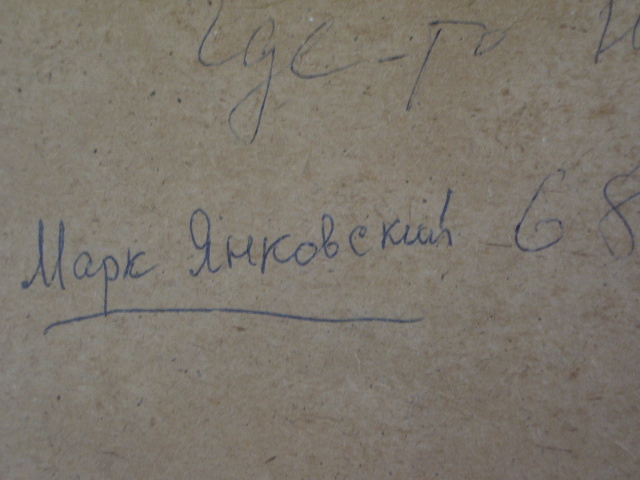 где-то
Марк Янковский 68